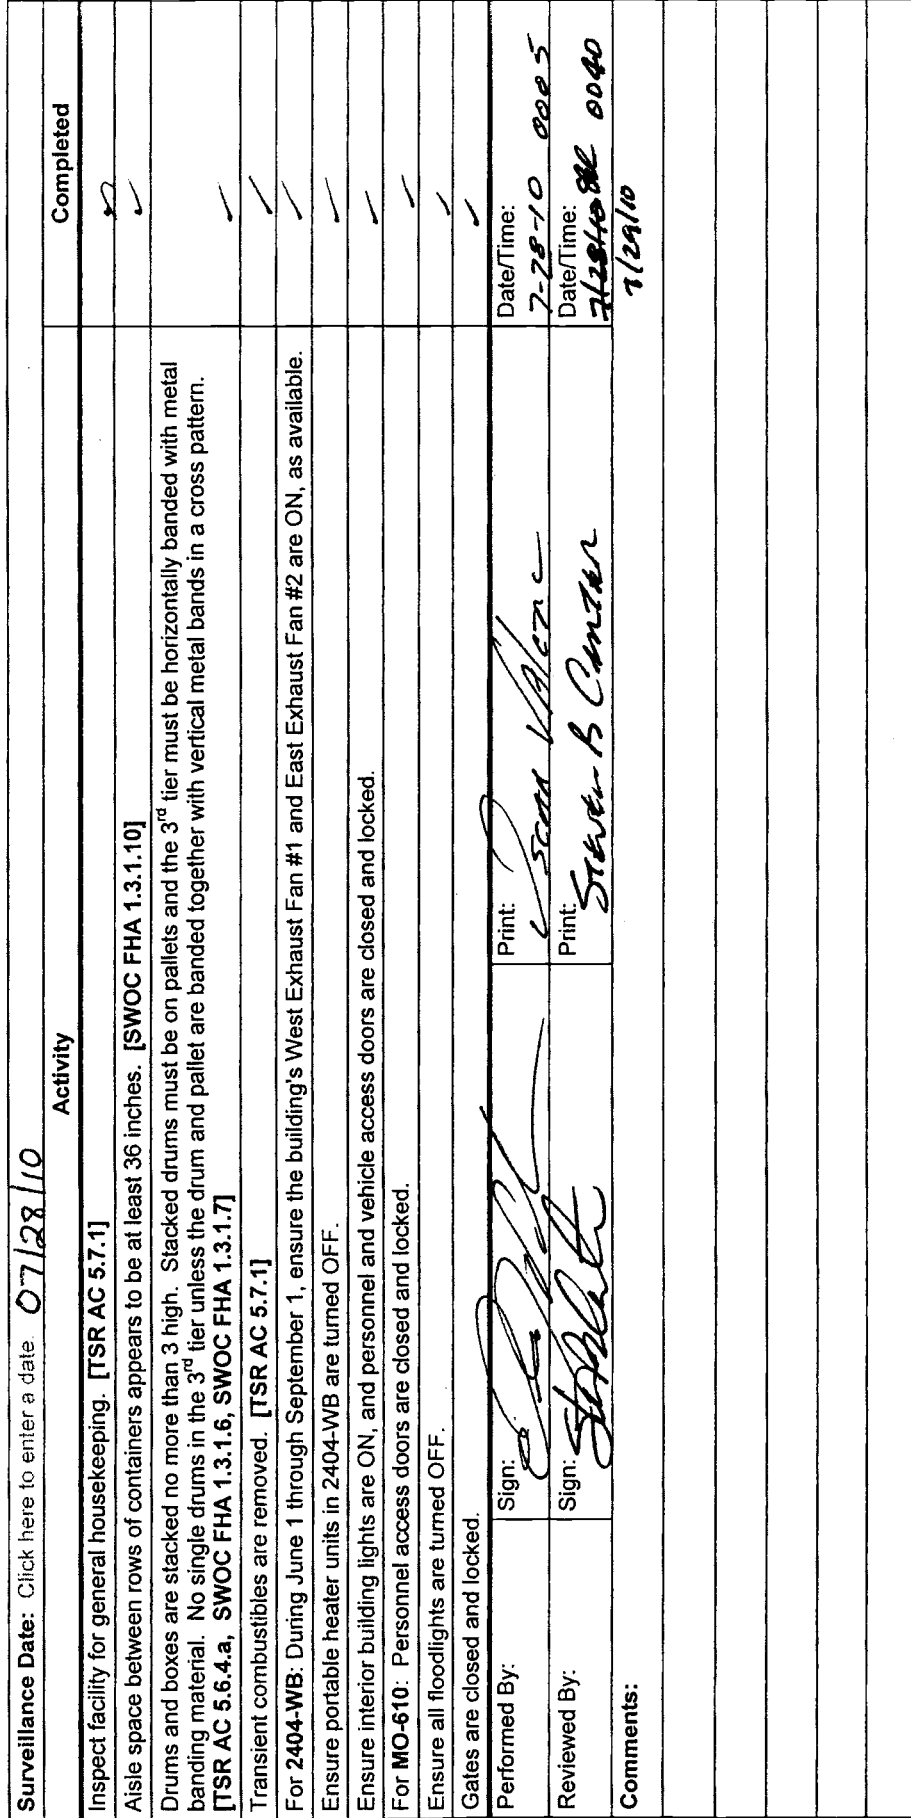 Surveillance Date: Click here to enter a date. 07/28/10
Activity Completed
Inspect facility for general housekeeping. [TSR AC 5.7.1]
Aisle space between rows of containers appears to be at least 36 inches. [SWOC FHA 1.3.1.10] ✓
Drums and boxes are stacked no more than 3 high. Stacked drums must be on pallets and the 3rd tier must be horizontally banded with metal
banding material. No single drums in the 3rd tier unless the drum and pallet are banded together with vertical metal bands in a cross pattern.
[TSR AC 5.6.4.a, SWOC FHA 1.3.1.6, SWOC FHA 1.3.1.7] ✓
Transient combustibles are removed. [TSR AC 5.7.1] ✓
For 2404-WB: During June 1 through September 1, ensure the building's West Exhaust Fan #1 and East Exhaust Fan #2 are ON, as available. ✓
Ensure portable heater units in 2404-WB are turned OFF. ✓
Ensure interior building lights are ON, and personnel and vehicle access doors are closed and locked. ✓
For MO-610: Personnel access doors are closed and locked. ✓
Ensure all floodlights are turned OFF. ✓
Gates are closed and locked. ✓
Performed By: Sign: Print: Date/Time:
7-28-10 0005
Reviewed By: Sign: Print: Steven B Date/Time:
7/28/10 0040
7/29/10
Comments: